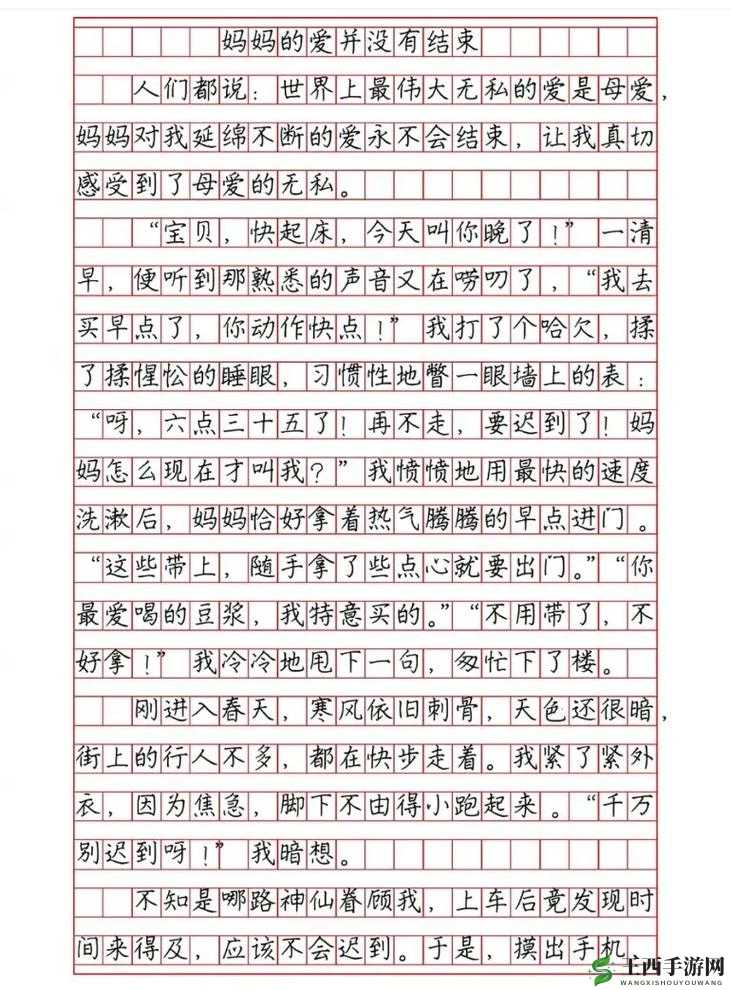 妈妈的爱并没有结束
人们都说：世界上最伟大无私的爱是母爱，
妈妈对我延绵不断的爱永不会结束，让我真切
感受到了母爱的无私。
“宝贝，快起床，今天叫你晚了！”一清
早，便听到那熟悉的声音又在唠叨了，“我去
买早点了，你动作快点！”我打了个哈欠，揉
了揉惺忪的睡眼，习惯性地瞥一眼墙上的表：
“呀，六点三十五了！再不走，要迟到了！妈
妈怎么现在才叫我？”我愤愤地用最快的速度
洗漱后，妈妈恰好拿着热气腾腾的早点进门。
“这些带上，随手拿了些点心就要出门。”“你
最爱喝的豆浆，我特意买的。”“不用带了，不
好拿！”我冷冷地甩下一句，匆忙下了楼。
刚进入春天，寒风依旧刺骨，天色还很暗，
街上的行人不多，都在快步走着。我紧了紧外
衣，因为焦急，脚下不由得小跑起来。“千万
别迟到呀！”我暗想。
不知是哪路神仙眷顾我，上车后竟发现时
间来得及，应该不会迟到。于是，摸出手机
王西手游网
WANGXISHOUYOUWANG